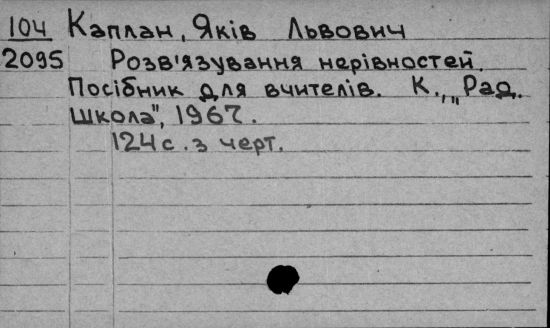 104 Каплан, Яків Львович
2095 Розв'язування нерівностей.
Посібник для вчителів. К., „Рад.
школа", 1967.
124 с. з черт.